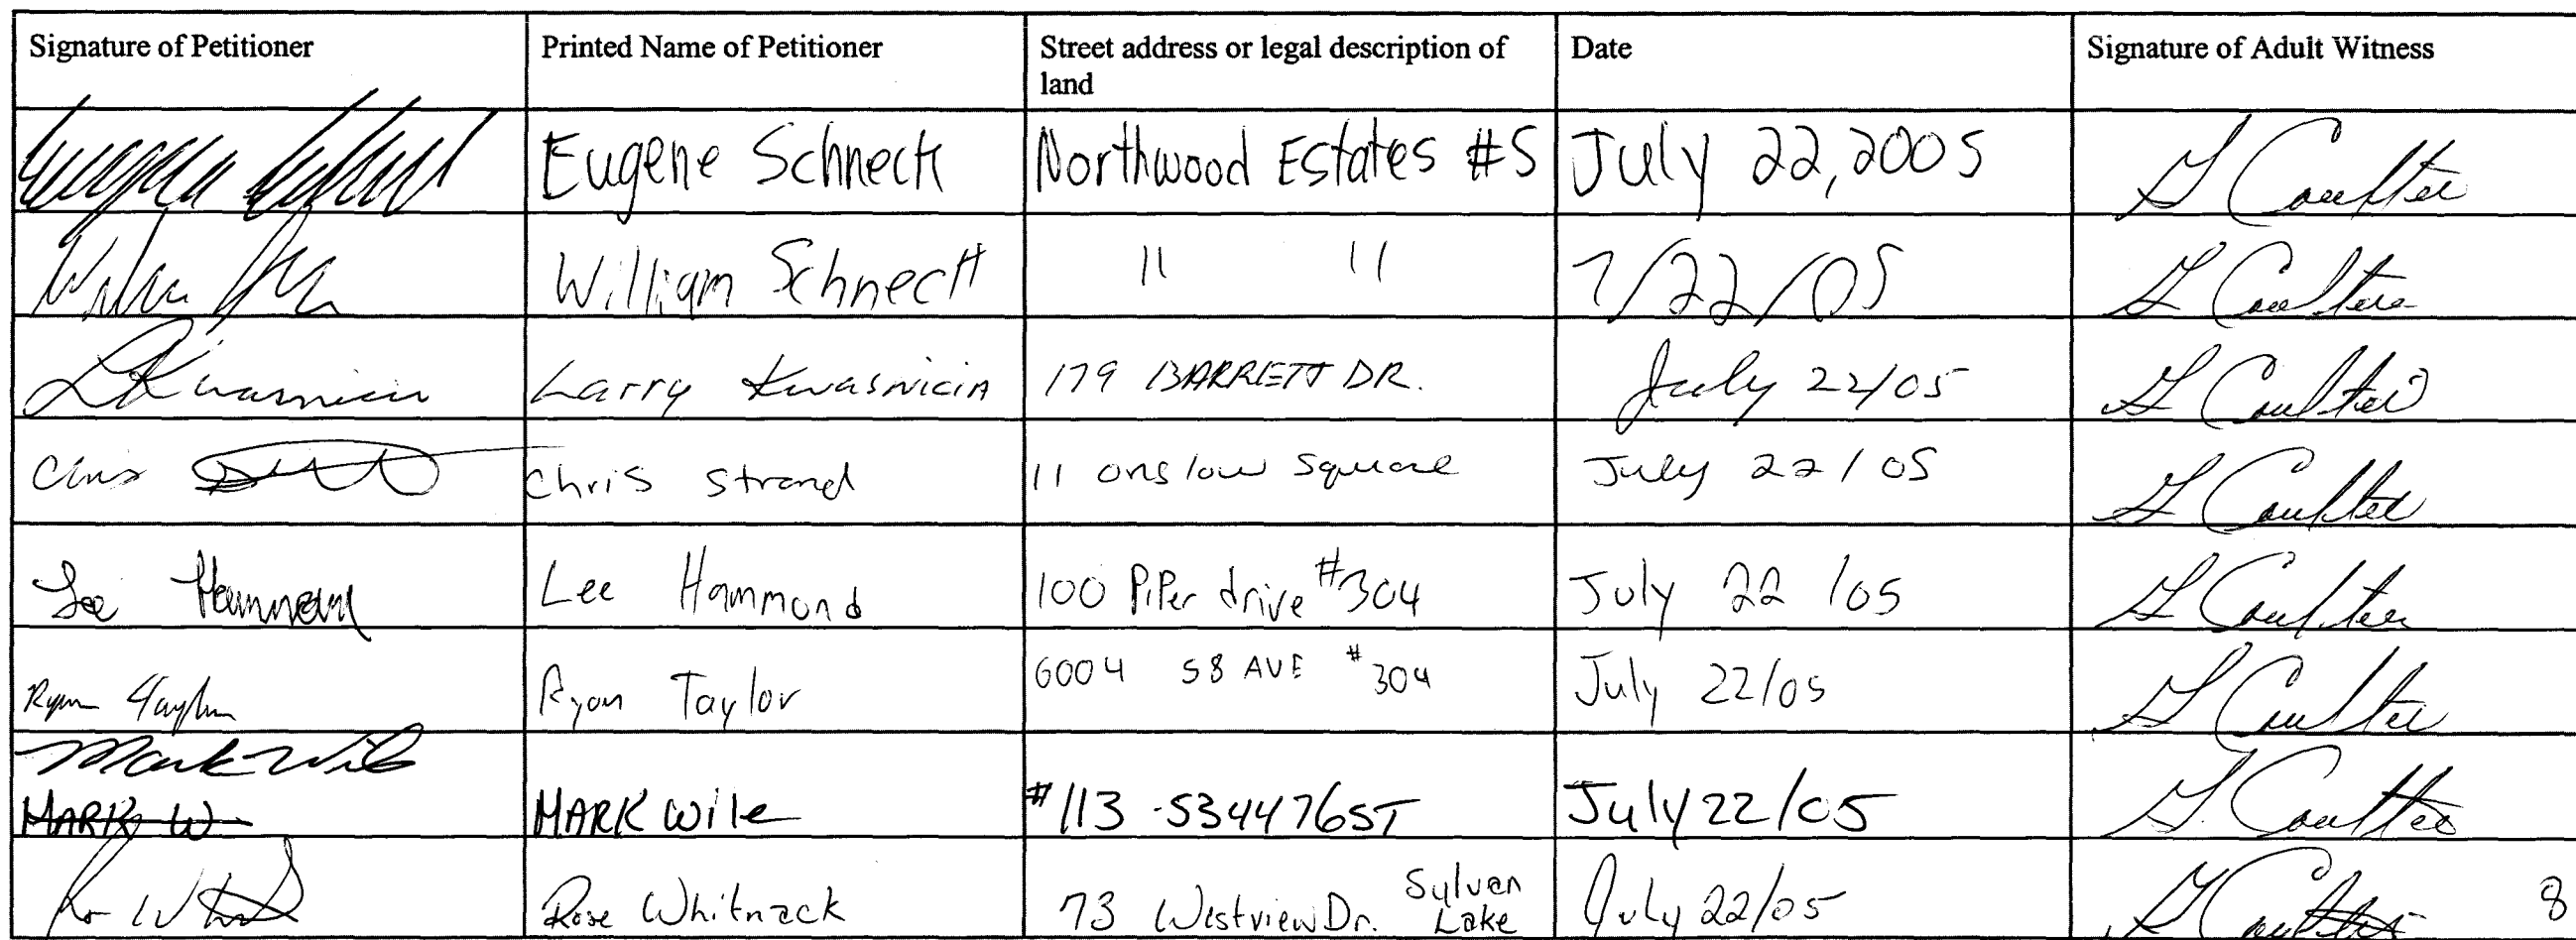 Signature of Petitioner Printed Name of Petitioner Street address or legal description of land Date Signature of Adult Witness
Eugene Schneck Northwood Estates #5 July 22, 2005 G Coulter
William Schneck " " 7/22/05 G Coulter
L Kwasnicia Larry Kwasnicia 179 BARRETT DR. July 22/05 G Coulter
Chris Chris Strand 11 onslow Square July 22/05 G Coulter
Lee Hammond Lee Hammond 100 PiPer drive #304 July 22 /05 G Coulter
Ryan Taylor Ryan Taylor 6004 58 AVE #304 July 22/05 G Coulter
Mark Wile
MARK W MARK Wile #113 -5344 76ST July 22/05 G. Coulter
Rose Whitnack 73 Westview Dr. Sylvan Lake July 22/05 G Coulter 8